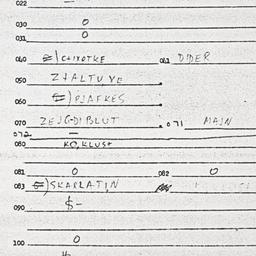 022 —
030 0
031 0
040 ≈) CHIXOTKE 041 DIDER
050 Z+ALTUYE
060 ≈) PJAFKES
070 ZEJG-DI BLUT 071 MAJN
072 —
080 KO, KLUS+
081 0 082 0
083 ≈) SKARLATJN
090 $-
100 0